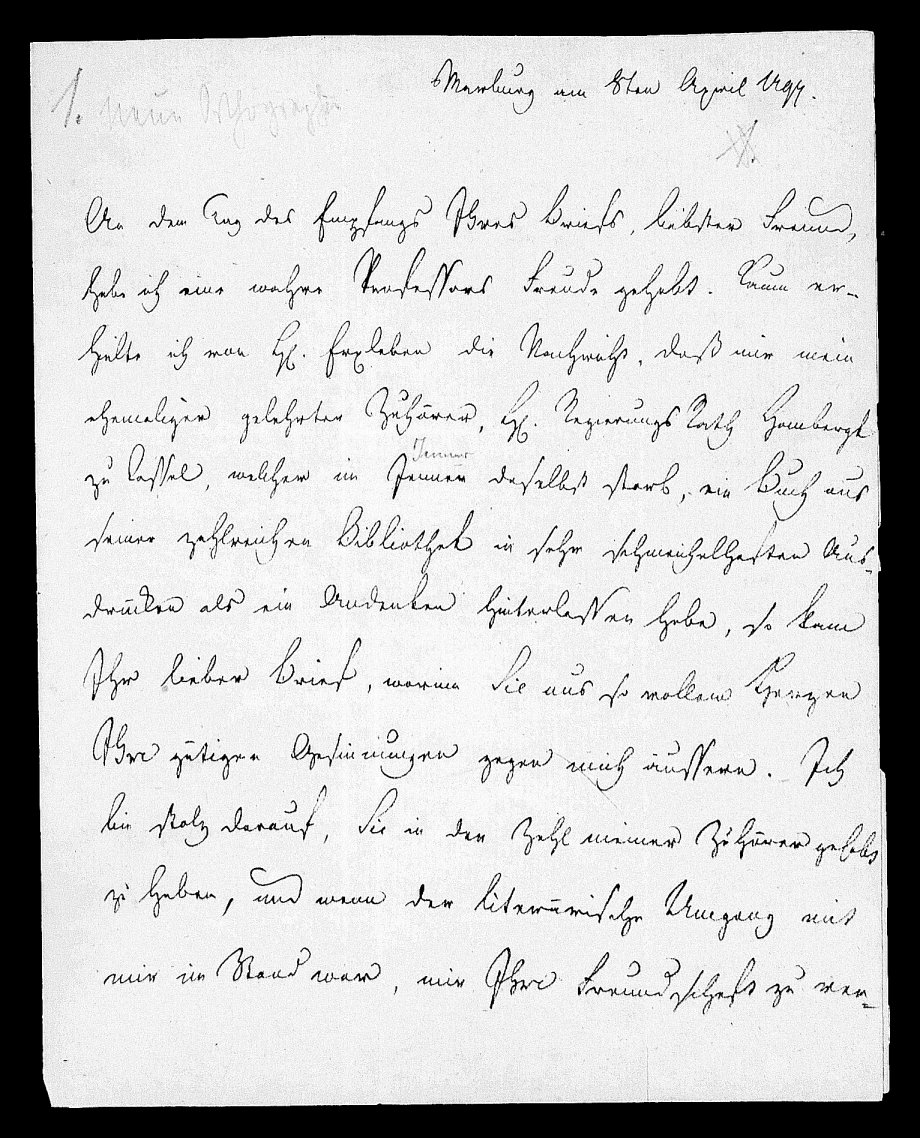 1. neue Orthographie
Marburg am 8ten April 1797.
An dem Tag des Empfangs Ihres Briefs, liebster Freund,
habe ich eine wahre Professors Freude gehabt. Kaum er-
hilte ich von H. Erxleben die Nachricht, daß mir mein
ehemaliger gelehrter Zuhörer, H. Regierungs Rath Hombergk
Jenner
zu Cassel, welcher im Jenner daselbst starb, ein Buch aus
seiner zahlreichen Bibliothek in sehr schmeichelhaften Aus-
drücken als ein Andenken hinterlassen habe, so kam
Ihr lieber Brief, worinn Sie aus so vollem Herzen
Ihre gütigen Gesinnungen gegen mich äussern. Ich
bin stolz darauf, Sie in der Zahl meiner Zuhörer gehabt
zu haben, und wenn der literärische Umgang mit
mir im Stand war, mir Ihre Freundschaft zu ver-